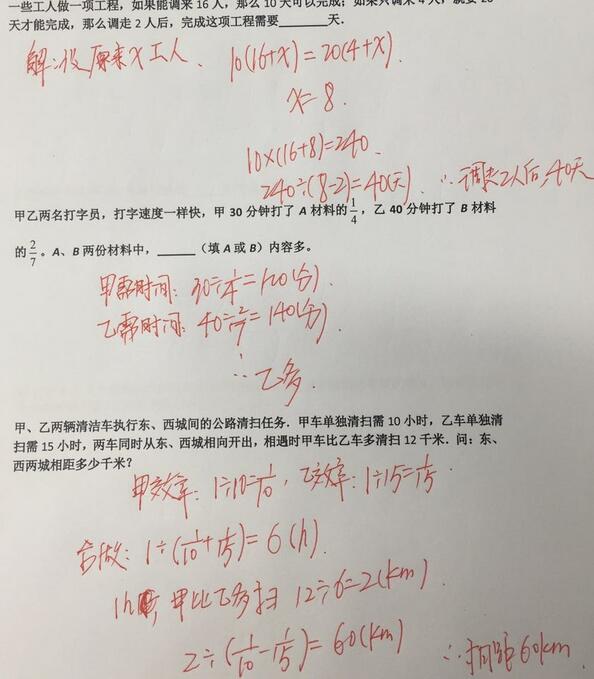 一些工人做一项工程，如果能调来 16 人，那么 10 天可以完成；如果只调来 4 人，就要 20
天才能完成，那么调走 2 人后，完成这项工程需要______天.
解:设原来x工人、 10(16+x)=20(4+x).
x=8.
10×(16+8)=240.
240÷(8-2)=40(天). ∴调走2人后,40天
甲乙两名打字员，打字速度一样快，甲 30 分钟打了 A 材料的1/4，乙 40 分钟打了 B 材料
的2/7。A、B 两份材料中，______（填 A 或 B）内容多。
甲需时间: 30÷1/4=120(分).
乙需时间: 40÷2/7=140(分).
∴乙多.
甲、乙两辆清洁车执行东、西城间的公路清扫任务．甲车单独清扫需 10 小时，乙车单独清
扫需 15 小时，两车同时从东、西城相向开出，相遇时甲车比乙车多清扫 12 千米．问：东、
西两城相距多少千米？
甲效率: 1÷10=1/10, 乙效率: 1÷15=1/15.
合做: 1÷(1/10+1/15)=6(h).
1h 甲比乙多扫 12÷6=2(km).
2÷(1/10-1/15)=60(km) ∴相距60km.